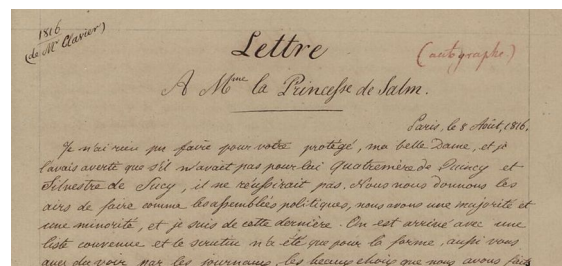 1816
(de Mr Clavier)
Lettre
(autographe)
A Mme la Princesse de Salm.
Paris, le 8 Août, 1816.
Je n'ai rien pu faire pour votre protégé, ma belle Dame, et je
l'avais averti que s'il n'avait pas pour lui Quatremère de Quincy et
Silvestre de Sacy, il ne réussirait pas. Nous nous donnons les
airs de faire comme les assemblées politiques, nous avons une majorité et
une minorité, et je suis de cette dernière. On est arrivé avec une
liste convenue et le scrutin n'a été que pour la forme, aussi vous
avez dû voir par les journaux, les beaux choix que nous avons faits